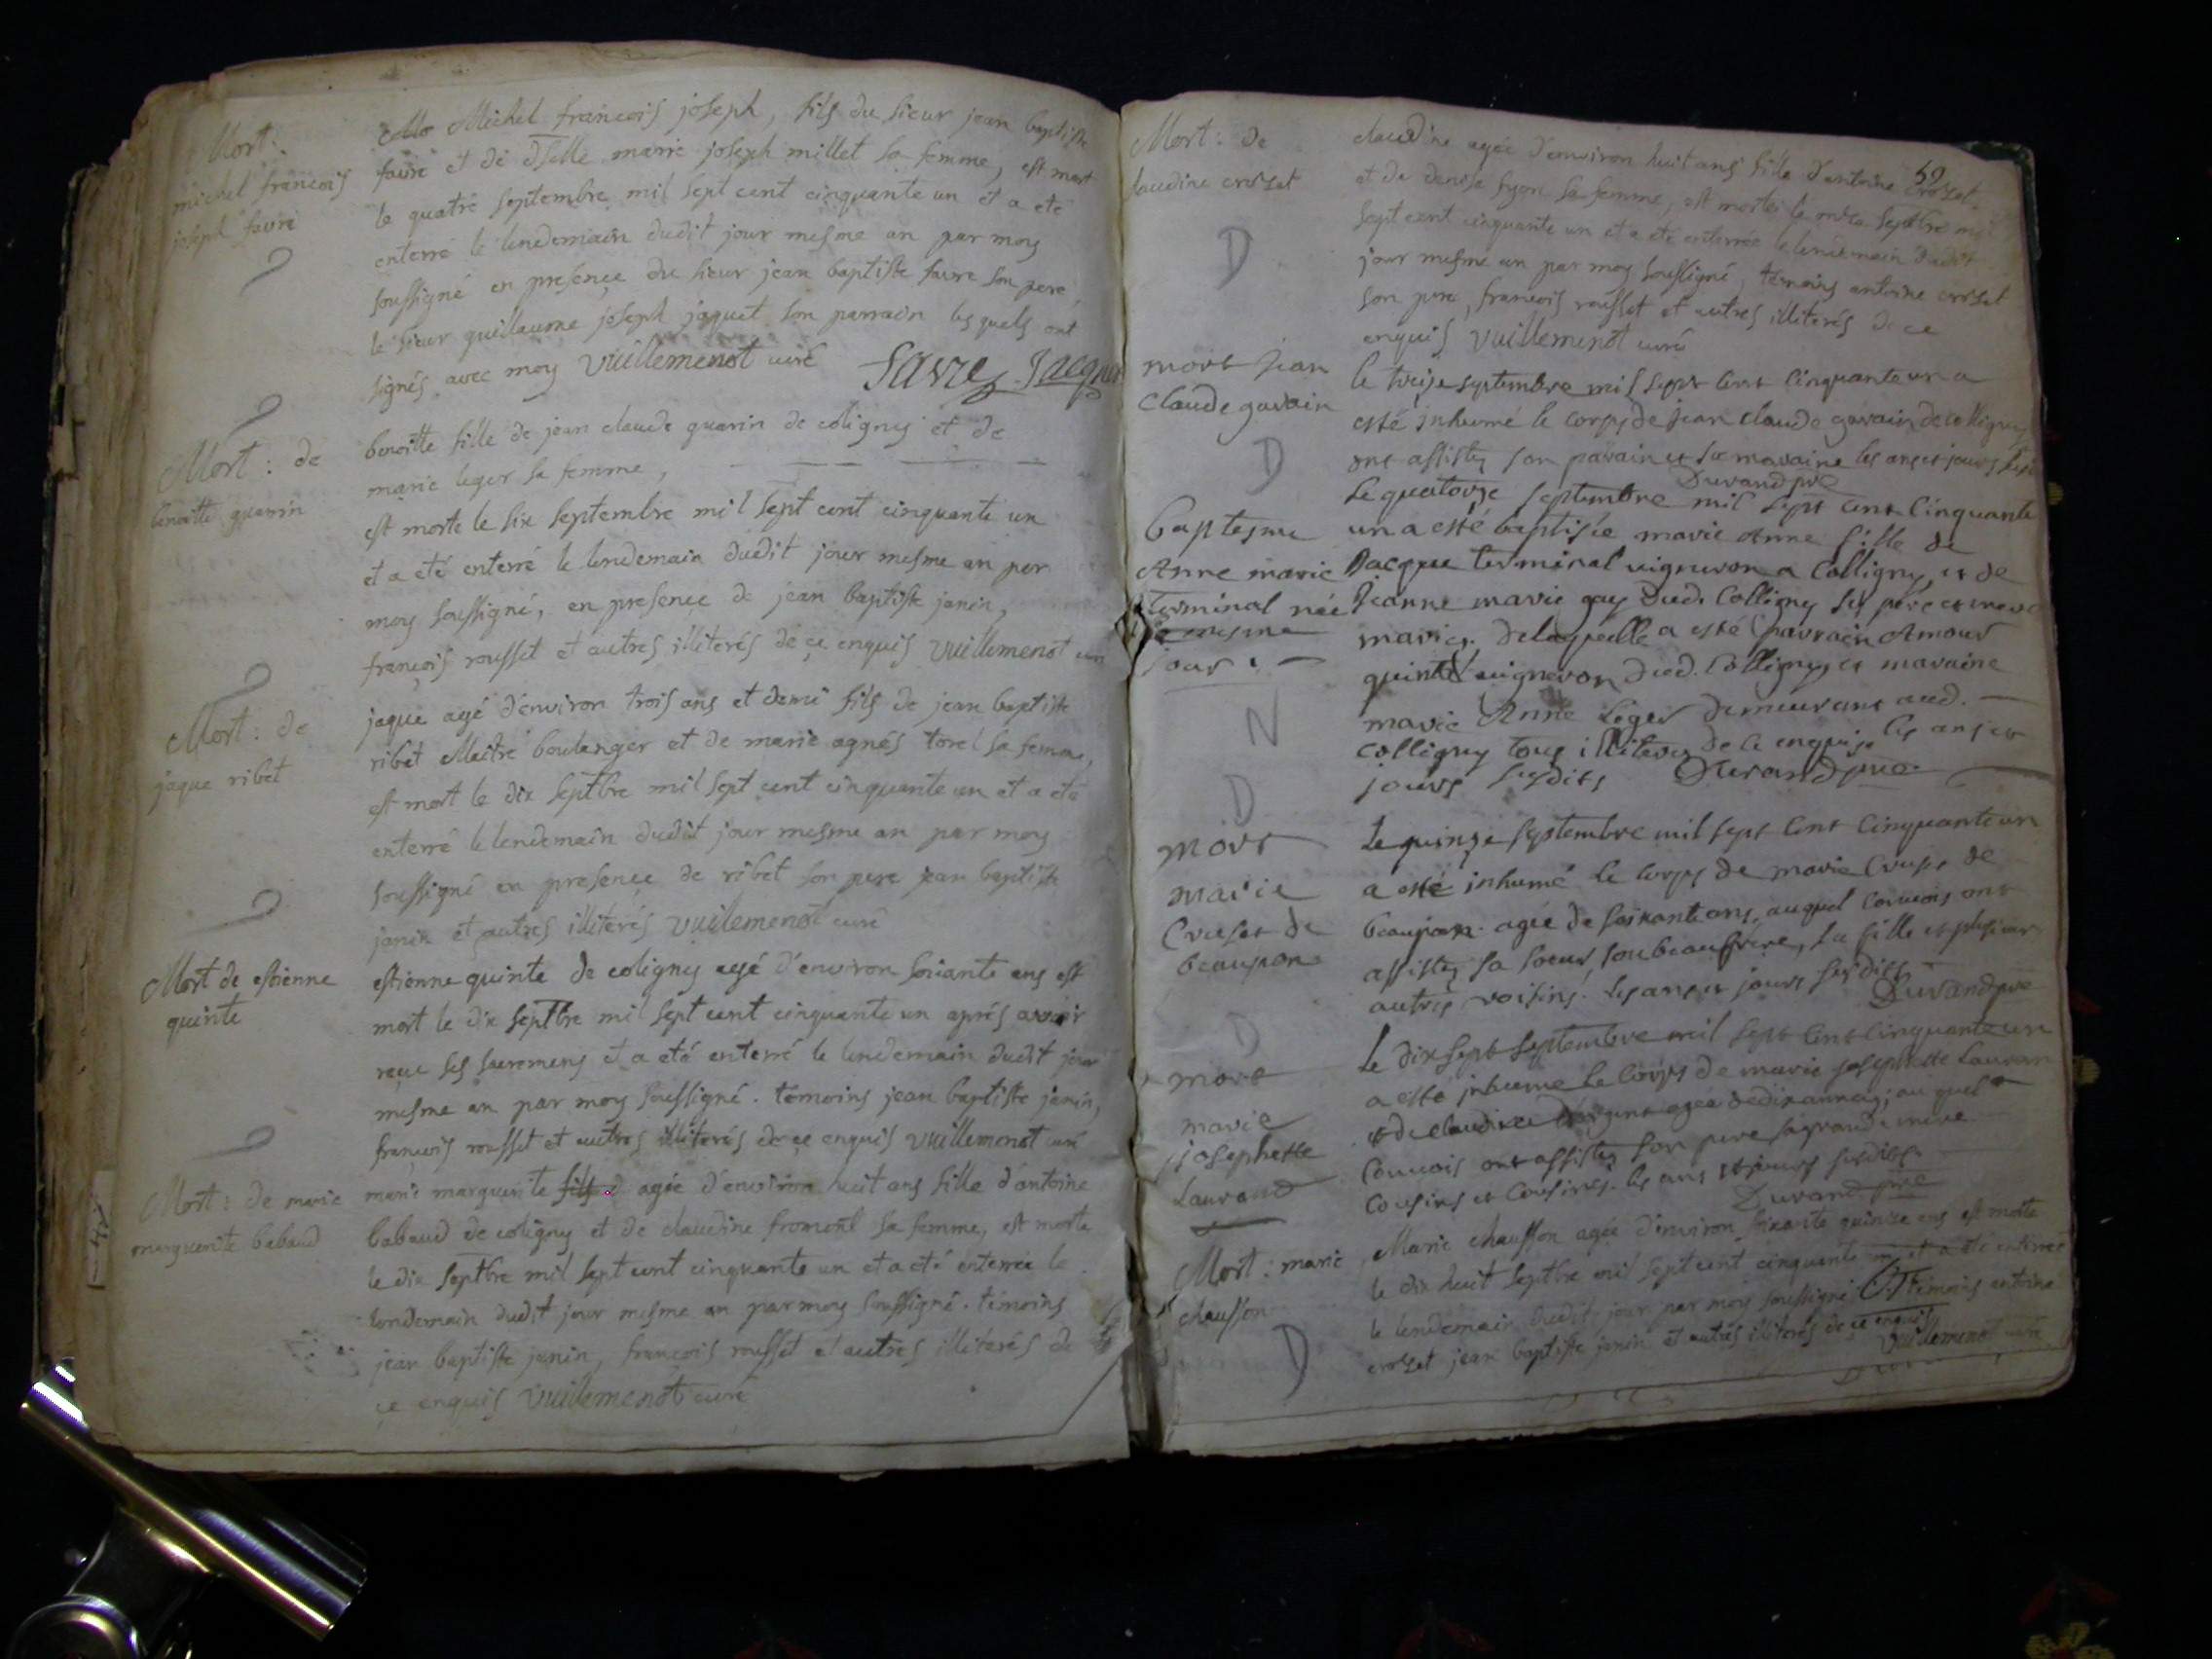 Mort:
michel francois
joseph favre
Michel francois joseph, fils du sieur jean baptiste
favre et de dselle marie joseph millet sa femme, est mort
le quatre septembre mil sept cent cinquante un et a eté
enterré le lendemain dudit jour mesme an par moy
soussigné en presençe du sieur jean baptiste favre son pere
le sieur guillaume joseph jaquet son parrain lesquels ont
signés avec moy Vuillemenot curé Favre Jacquet
Mort: de
benoitte guarin
benoitte fille de jean claude guarin de coligny et de
marie leger sa femme,
est morte le six septembre mil sept cent cinquante un
et a eté enterré le lendemain dudit jour mesme an par
moy soussigné, en presençe de jean baptiste janin,
françois rousset et autres illiterés de çe enquis Vuillemenot curé
Mort: de
jaque ribet
jaque agé d'environ trois ans et demi fils de jean baptiste
ribet Maitre boulanger et de marie agnés torel sa femme,
est mort le dix septbre mil sept cent cinquante un et a eté
enterré le lendemain dudit jour mesme an par moy
soussigné en presençe de ribet son pere jean baptiste
janin et autres illiterés Vuillemenot curé
Mort de estienne
quinte
estienne quinte de coligny agé d'environ soixante ans est
mort le dix septbre mil sept cent cinquante un aprés avoir
reçue ses sacremens et a eté enterré le lendemain dudit jour
mesme an par moy soussigné. temoins jean baptiste janin,
françois rousset et autres illiterés de çe enquis Vuillemenot curé
Mort: de marie
marguerite babaud
marie marguerite fils d agée d'environ huit ans fille d'antoine
babaud de coligny et de claudine fromont sa femme, est morte
le dix septbre mil sept cent cinquante un et a eté enterrée le
lendemain dudit jour mesme an par moy soussigné. temoins
jean baptiste janin, francois rousset et autres illiterés de
çe enquis Vuillemenot curé
52
Mort: de
claudine croset
D
claudine agée d'environ huit ans fille d'antoine croset
et de denise fyon sa femme, est morte le onze septbre mil
sept cent cinquante un et a eté enterrée le lendemain dudit
jour mesme an par moy soussigné, temoins antoine croset
son pere, francois rousset et autres illiterés de ce
enquis Vuillemenot curé
mort jean
claude gavain
D
le treize septembre mil sept cent cinquante un a
esté inhumé le corps de jean claude gavain de colligny
ont assistez son parain et sa maraine les ans et jours susd
Durand pre
baptesme
Anne marie
terminal née
le mesme
jour.
N
Le quatorze septembre mil sept cent cinquante
un a esté baptisée marie Anne fille de
Jacque terminal vigneron a Colligny, et de
Jeanne marie gay dud. Colligny ses père et mere
mariez. de laquelle a esté parrain Amour
quinte vigneron dud. Colligny et maraine
marie Anne Léger demeurans aud.
Colligny tous illiterez de ce enquis les ans et
jours susdits Durand pre
D
mort
marie
Cruset de
beaupon
Le quinze septembre mil sept cent cinquante un
a esté inhumé le corps de marie Cruset de
beaupon agée de soixante ans, auquel convois ont
assistez sa soeur, son beaufrere, sa fille et plusieurs
autres voisins. les ans et jours susdits
Durand pre
D
mort
marie
josephette
Laurand
Le dix sept septembre mil sept cent cinquante un
a esté inhumé le corps de marie josephette Lauran
et de claudine agée de dix années, au quel
convois ont assistez son pere sa grande mere
cousins et cousines. les ans et jours susdits.
Durand pre
Mort: marie
chausson
D
Marie chausson agée d'environ soixante quinze ans est morte
le dix huit septbre mil sept cent cinquante un et a eté enterrée
le lendemain dudit jour par moy soussigné temoins antoine
croset jean baptiste janin et autres illiterés de çe enquis
Vuillemenot curé